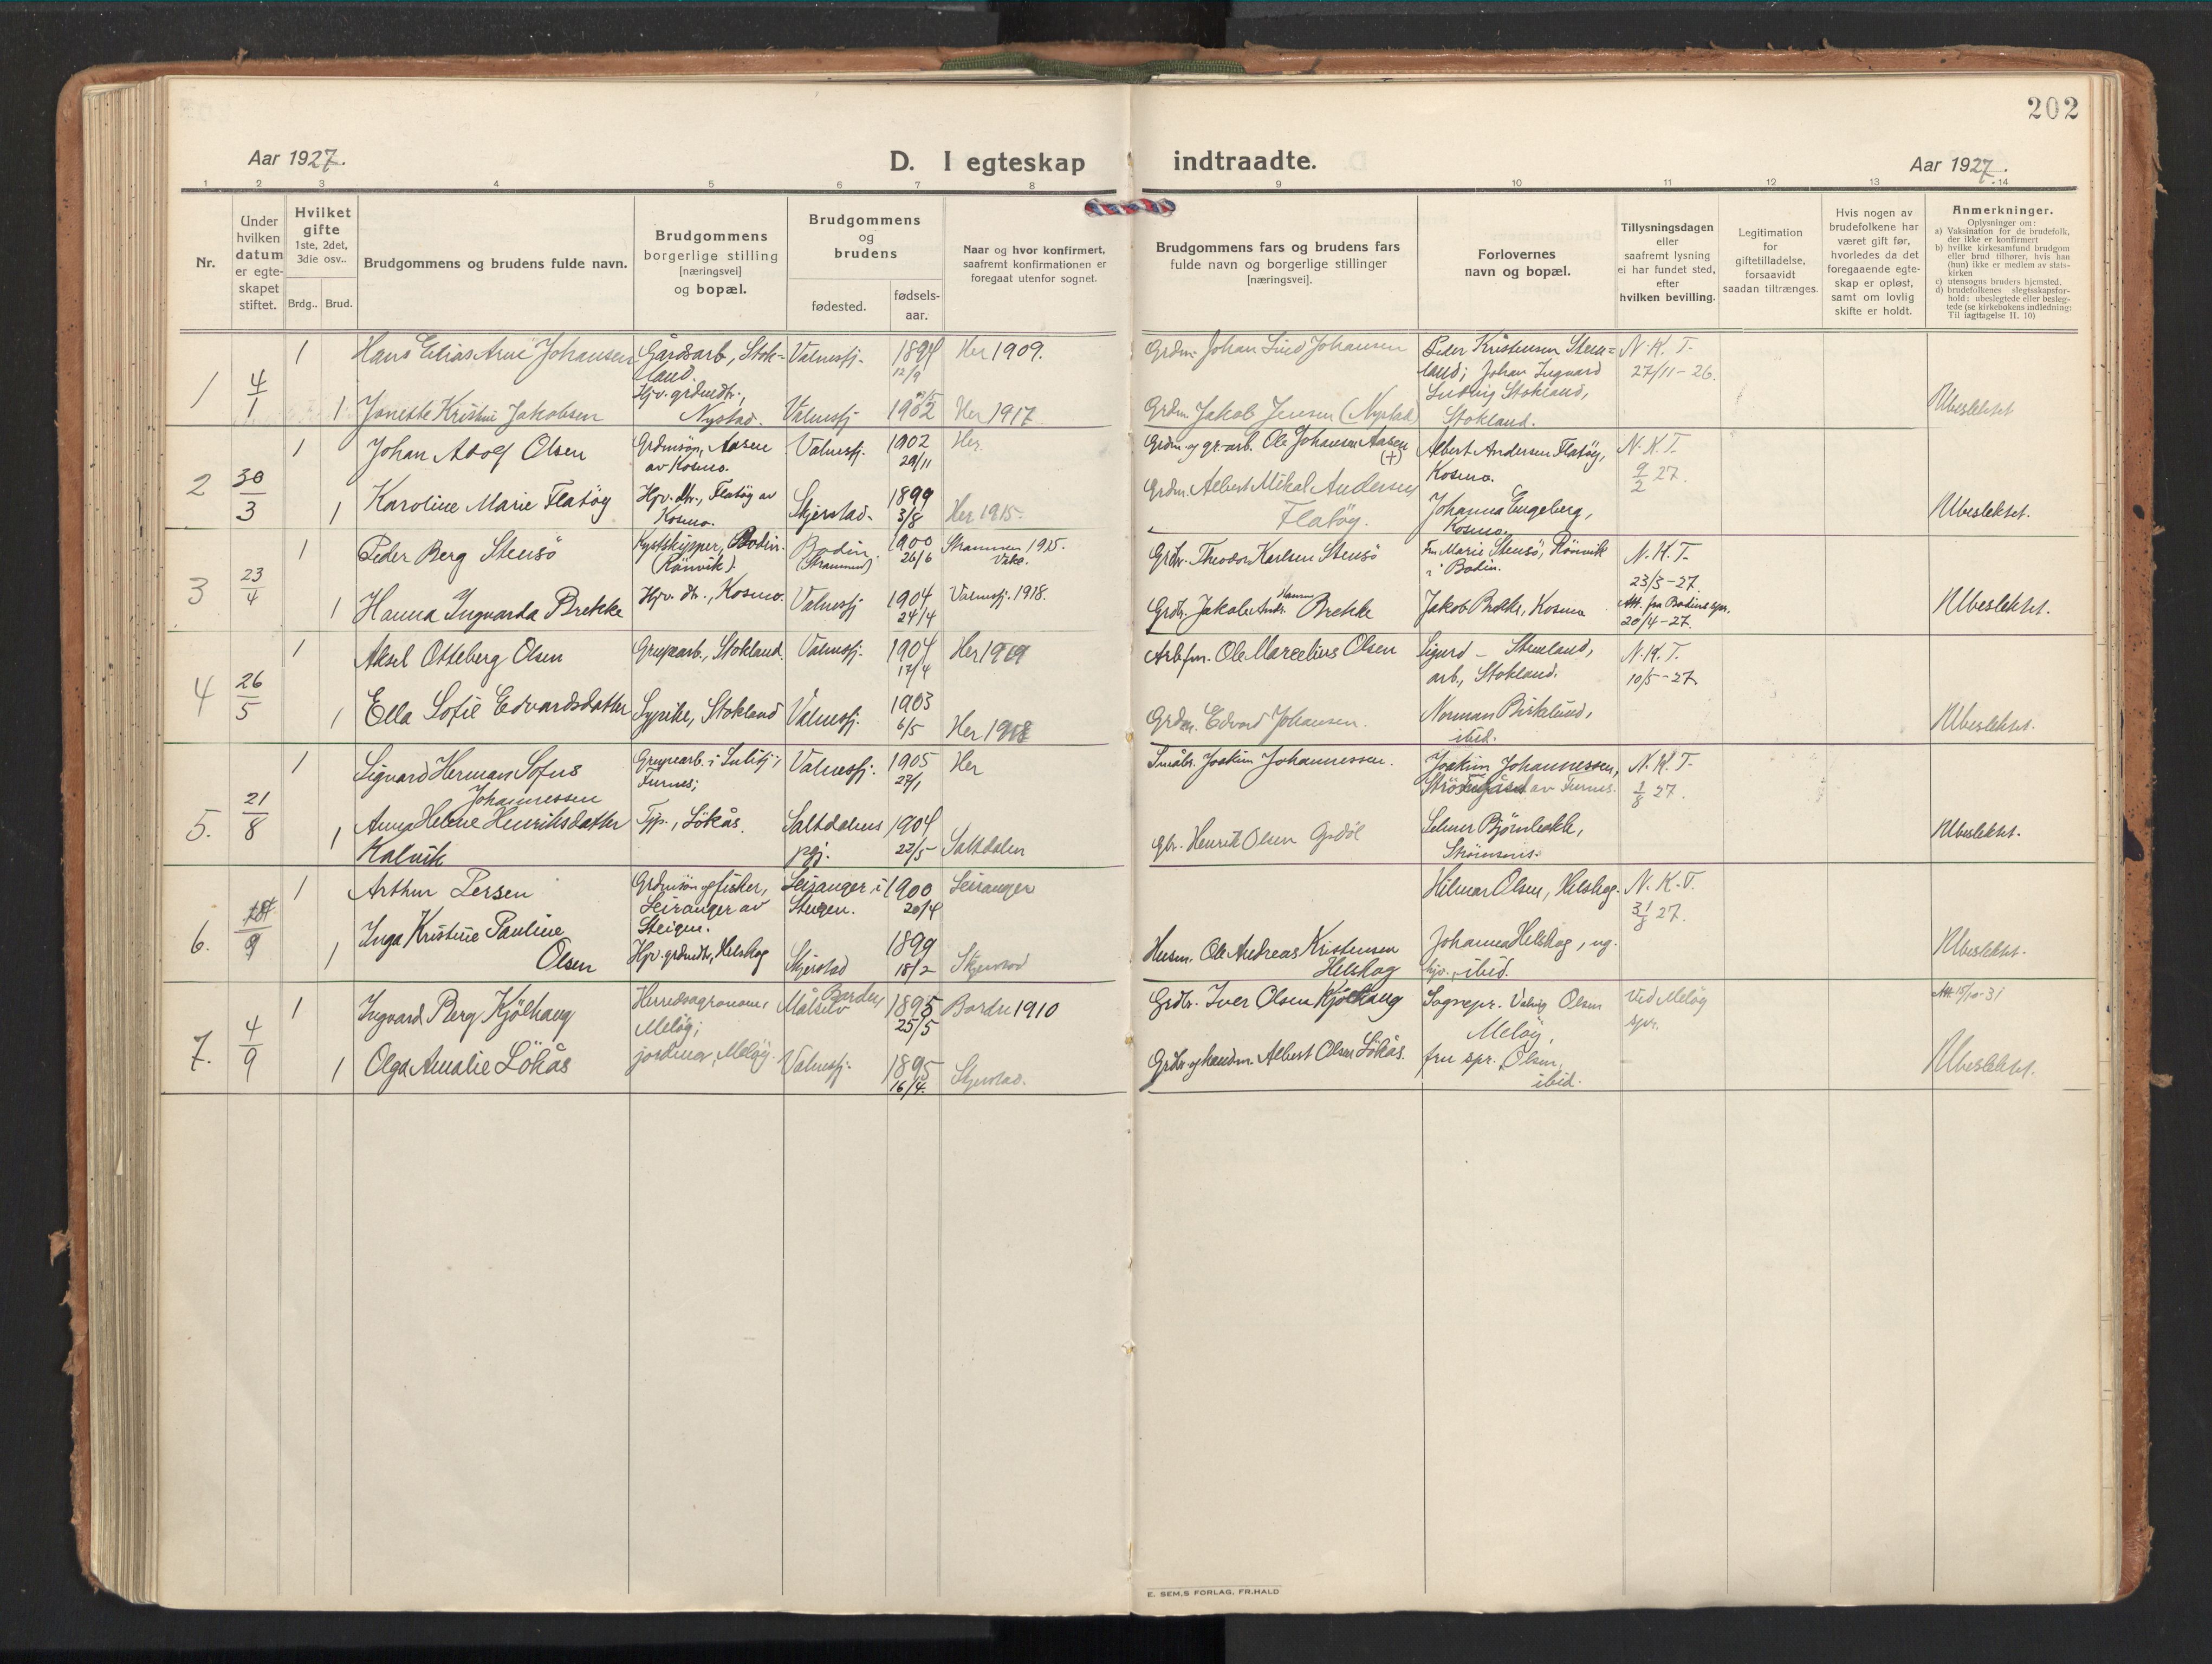 202
Aar 1927.
D. I egteskap indtraadte.
Aar 1927.
1 2 3 4 5 6 7 8 9 10 11 12 13 14
Nr.
Under
hvilken
datum
er egte-
skapet
stiftet.
Hvilket
gifte
1ste, 2det,
3die osv..
Brdg.. Brud.
Brudgommens og brudens fulde navn.
Brudgommens
borgerlige stilling
[næringsvei]
og bopæl.
Brudgommens
og
brudens
fødested.
fødsels-
aar.
Naar og hvor konfirmert,
saafremt konfirmationen er
foregaat utenfor sognet.
Brudgommens fars og brudens fars
fulde navn og borgerlige stillinger
[næringsvei].
Forlovernes
navn og bopæl.
Tillysningsdagen
eller
saafremt lysning
ei har fundet sted,
efter
hvilken bevilling.
Legitimation
for
giftetilladelse,
forsaavidt
saadan tiltrænges.
Hvis nogen av
brudefolkene har
været gift før,
hvorledes da det
foregaaende egte-
skap er opløst,
samt om lovlig
skifte er holdt.
Anmerkninger.
Oplysninger om:
a) Vaksination for de brudefolk,
der ikke er konfirmert
b) hvilke kirkesamfund brudgom
eller brud tilhører, hvis han
(hun) ikke er medlem av stats-
kirken
c) utensogns bruders hjemsted.
d) brudefolkenes slegtsskapsfor-
hold: ubeslegtede eller besleg-
tede (se kirkebokens indledning:
Til iagttagelse II. 10)
1
4/1
1 Hans Elias Arne Johansen
Gårdsarb, Stok-
land.
Valnesfj. 1894
12/9
Her 1909.
Grdm. Johan Lind Johansen
Peder Kristensen Sten-
land; Johan Ingvard
Ludvig Stokland,
Stokland.
N. K. T.
27/11-26.
1 Jonette Kristine Jakobsen
Hjv. grdmdtr.,
Nystad.
Valnesfj. 1902
Her 1917
Grdm. Jakob Jensen (Nystad)
Ubeslektet
2
30/3
1 Johan Adolf Olsen
Grdmsøn, Aasen
av Kosmo.
Valnesfj. 1902
29/11
Her.
Grdm. og gr.arb. Ole Johansen Aasen
(+)
Albert Andersen Flatöy,
Kosmo.
N. K. T.
9/2 27.
1 Karoline Marie Flatöy
Hjv. dtr., Flatöy av
Kosmo.
Skjerstad. 1899
3/8
Her 1915.
Grdm. Albert Mikal Andersen
Flatöy.
Johanna Engeberg,
Kosmo.
Ubeslektet.
3
23/4
1 Peder Berg Stensö
Kystskipper, Bodin
(Rönvik).
Bodin 1900
26/6
Strammen 1915.
Grdbr. Theodor Karlsen Stensö
Fru Marie Stensö, Rönvik
i Bodin.
N. K. T.
23/3-27.
1 Hanna Ingvarda Brekke
Hjv. dtr., Kosmo.
Valnesfj 1904
24/4
Valnesfj. 1918.
Grdbr. Jakob Andr. Hansen Brekke
Jakob Brekke, Kosmo
Att. fra Bodins spr.
20/4-27.
Ubeslektet.
4
26/5
1 Aksel Otteberg Olsen
Grupearb., Stokland.
Valnesfj. 1904
17/4
Her 1919
Arb.fm. Ole Marcelius Olsen
Sigurd - Stenland,
arb., Stokland.
N. K. T.
10/5-27.
1 Ella Sofie Edvardsdatter
Sypike, Stokland
Valnesfj. 1903
6/5
Her 1918
Grdm. Edvard Johansen.
Norman Birkelund,
ibid.
Ubeslektet.
5.
21/8
1 Sigvard Herman Sofus
Johannessen
Grupearb. i Sulitj.,
Furnes;
Valnesfj. 1905
27/1
Her
Småbr. Joakim Johannessen.
Joakim Johannessen,
av Furnes.
N. K. T.
1/8 27.
1 Anna Helene Henriksdatter
Kalvik
Tyj., Lökås.
Saltdalens
pgj.
1904
22/5
Saltdalen
Gbr. Henrik Olsen
Selmer Bjørnbakk,
Strömsnes.
Ubeslektet.
6.
9
1 Arthur Persen
Grdmsön og fisker,
Leiranger av
Steigen.
Leiranger i
Steigen.
1900
20/4
Leiranger
Hilmar Olsen, Helskog.
N. K. T.
31/8 27.
1 Inga Kristine Pauline
Olsen
Hjv. grdmdtr, Helskog
Skjerstad 1899
18/2
Skjerstad
Husm. Ole Andreas Kristensen
Helskog
Johanna Helskog, ug.
hjv., ibid.
Ubeslektet.
7.
4/9
1 Ingvard Berg Kjölhaug
Herredsagronom,
Meløy;
Målselv Bardu, 1895
25/5
Bardu 1910
Grdbr. Iver Olsen Kjölhaug
Sognepr. Olsen
Meløy,
Ved Meløy
spr.
Att 15/10-31
1 Olga Amalie Lökås
jordmor, Meløy.
Valnesfj. 1895
16/4.
Skjerstad.
Grdbr og handm. Albert Olsen Lökås.
fru spr. Olsen,
ibid.
Ubeslektet.
E. SEM.S FORLAG, FR.HALD